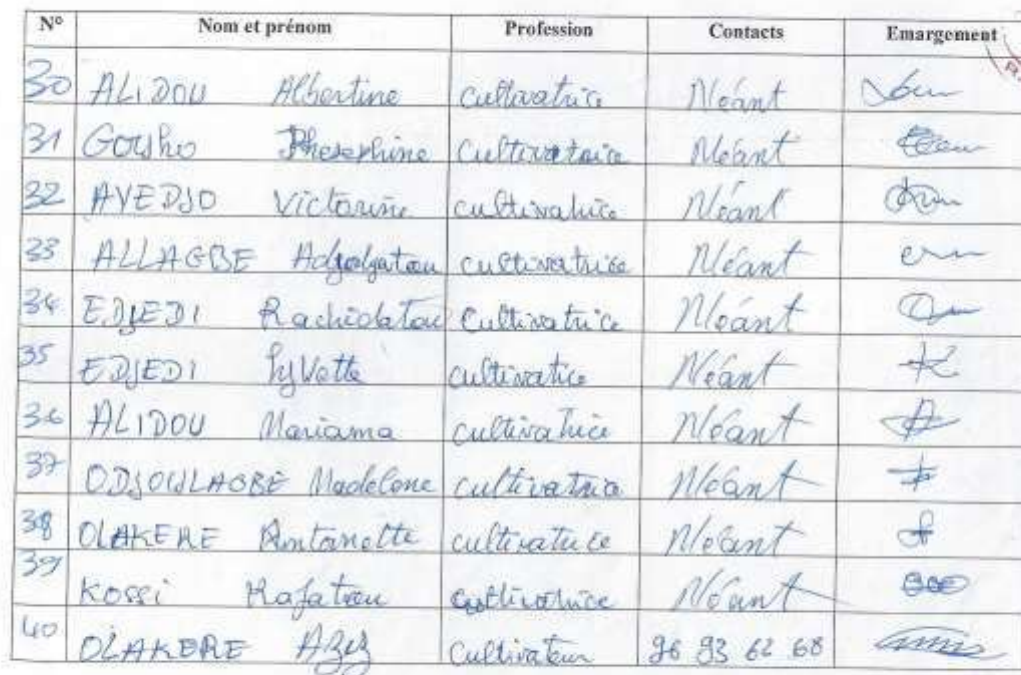 N° Nom et prénom Profession Contacts Emargement
30 ALIDOU Albertine cultivatrice Néant
31 Gousho Phesephine Cultivatrice Néant
32 AYEDJO Victorine cultivatrice Néant
33 ALLAGBE cultivatrice Néant
34 EDJEDI Rachidatou Cultivatrice Néant
35 EDJEDI Sylvette cultivatice Néant
36 ALIDOU Mariama cultivatrice Néant
37 ODJOULAGBE Madelene cultivatrice Néant
38 OLAKERE Antoinette cultivatrice Néant
39 Kossi Rafatou cultivatrice Néant
40 OLAKERE Aziz Cultivateur 96 93 62 68